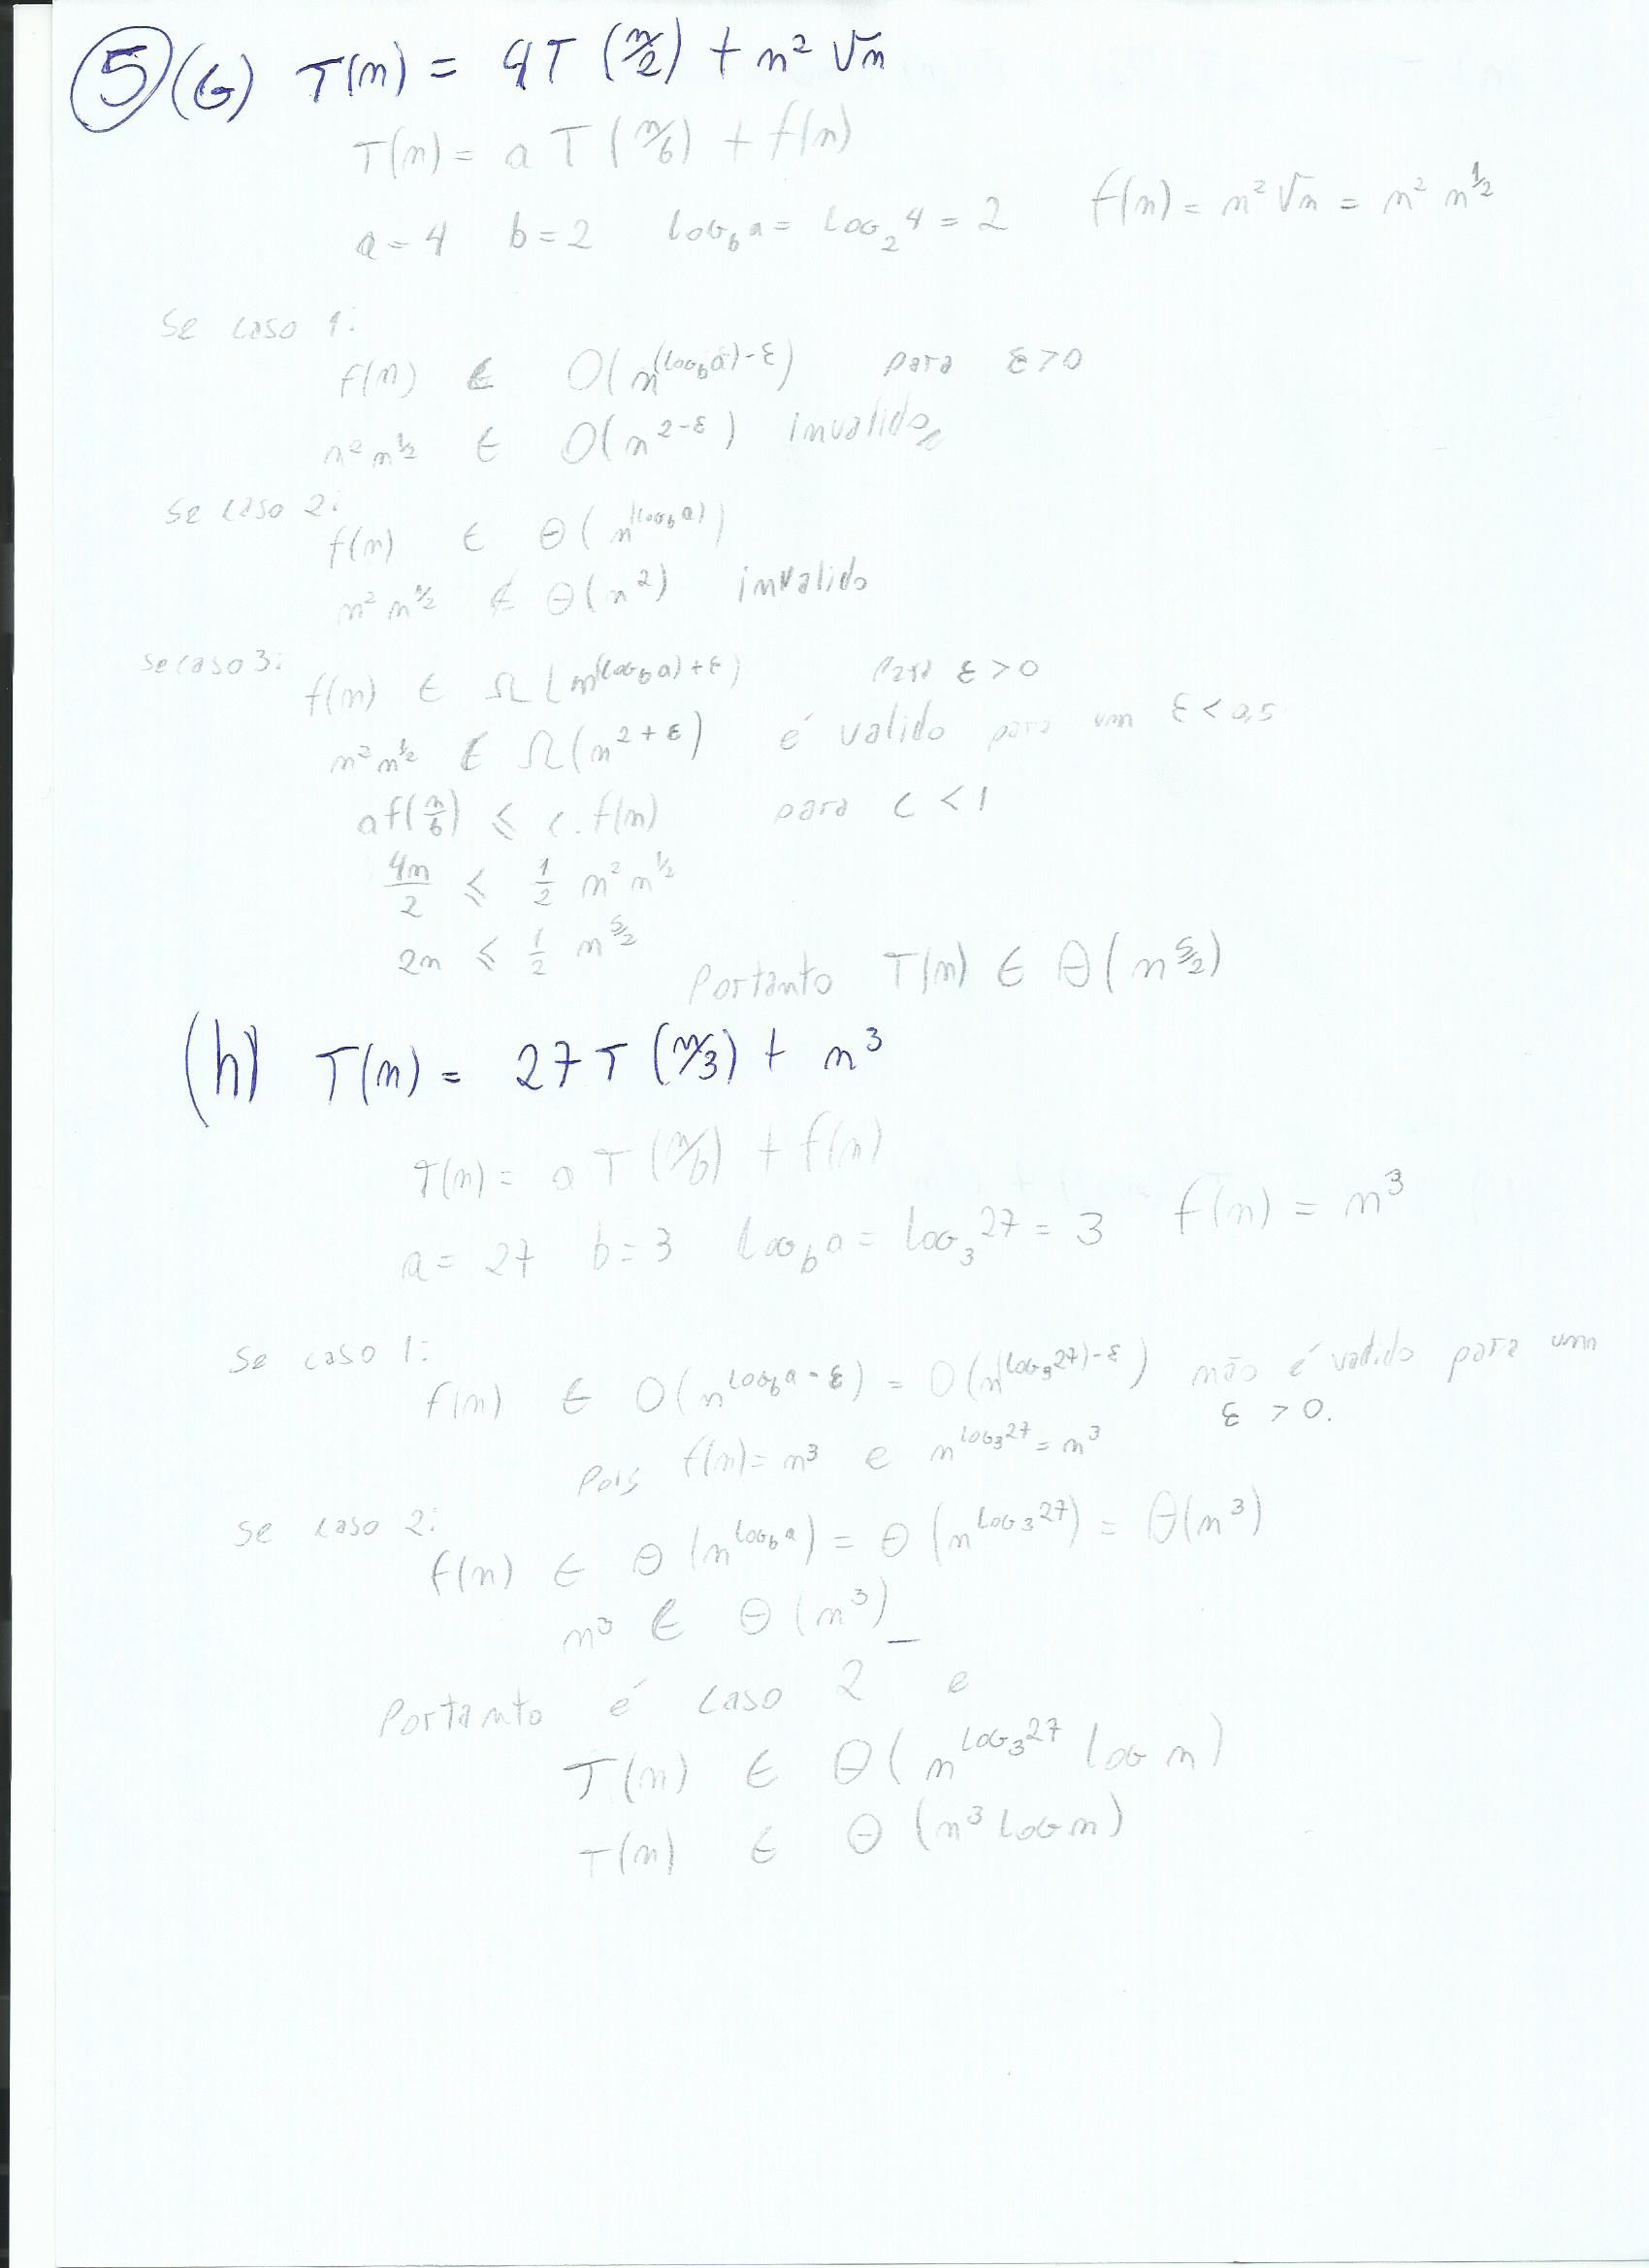 5 (G) T(n) = 4T(n/2) + n² √n
T(n) = a T(n/b) + f(n)
a = 4 b = 2 LOG_b a = LOG_2 4 = 2 f(n) = n² √n = n² n^{1/2}
Se caso 1:
f(n) ∈ O(n^{(LOG_b a) - ε}) para ε > 0
n² n^{1/2} ∈ O(n^{2-ε}) invalido
Se caso 2:
f(n) ∈ Θ(n^{(LOG_b a)})
n² n^{1/2} ∉ Θ(n²) invalido
Se caso 3:
f(n) ∈ Ω(n^{(LOG_b a) + ε}) Para ε > 0
n² n^{1/2} ∈ Ω(n^{2+ε}) é valido para um ε < 0,5
a f(n/b) ≤ c. f(n) para c < 1
4n/2 ≤ 1/2 n² n^{1/2}
2n ≤ 1/2 n^{5/2}
Portanto T(n) ∈ Θ(n^{5/2})
(h) T(n) = 27T(n/3) + n³
T(n) = a T(n/b) + f(n)
a = 27 b = 3 LOG_b a = LOG_3 27 = 3 f(n) = n³
Se caso 1:
f(n) ∈ O(n^{LOG_b a - ε}) = O(n^{(LOG_3 27) - ε}) não é valido para um
ε > 0.
Pois f(n) = n³ e n^{LOG_3 27} = n³
Se caso 2:
f(n) ∈ Θ(n^{LOG_b a}) = Θ(n^{LOG_3 27}) = Θ(n³)
n³ ∈ Θ(n³)
Portanto é caso 2 e
T(n) ∈ Θ(n^{LOG_3 27} LOG n)
T(n) ∈ Θ(n³ LOG n)